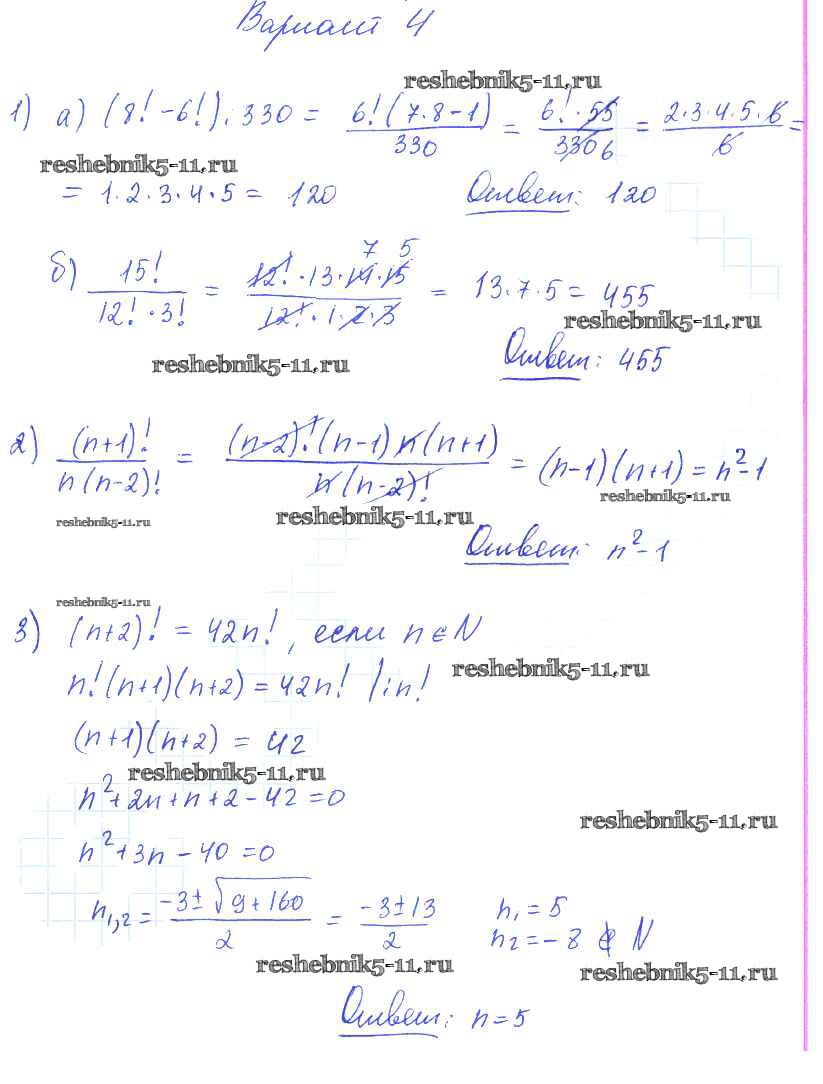 Вариант 4
reshebnik5-11.ru
1) а) (8! - 6!) : 330 = 6!(7·8-1)/330 = 6!·55/330 6 = 2·3·4·5·6/6 =
reshebnik5-11.ru
= 1·2·3·4·5 = 120 Ответ: 120
б) 15!/(12!·3!) = 12!·13·14·15/(12!·1·2·3) 7 5 = 13·7·5 = 455
reshebnik5-11.ru
reshebnik5-11.ru
Ответ: 455
2) (n+1)!/(n(n-2)!) = (n-2)!(n-1)n(n+1)/(n(n-2)!) = (n-1)(n+1) = n²-1
reshebnik5-11.ru
reshebnik5-11.ru
reshebnik5-11.ru
Ответ: n²-1
reshebnik5-11.ru
3) (n+2)! = 42n!, если n∈N
reshebnik5-11.ru
n!(n+1)(n+2) = 42n! |:n!
(n+1)(n+2) = 42
reshebnik5-11.ru
n²+2n+n+2-42=0
reshebnik5-11.ru
n²+3n-40=0
n₁,₂ = (-3±√(9+160))/2 = (-3±13)/2 n₁=5
n₂=-8 ∉ N
reshebnik5-11.ru
reshebnik5-11.ru
Ответ: n=5